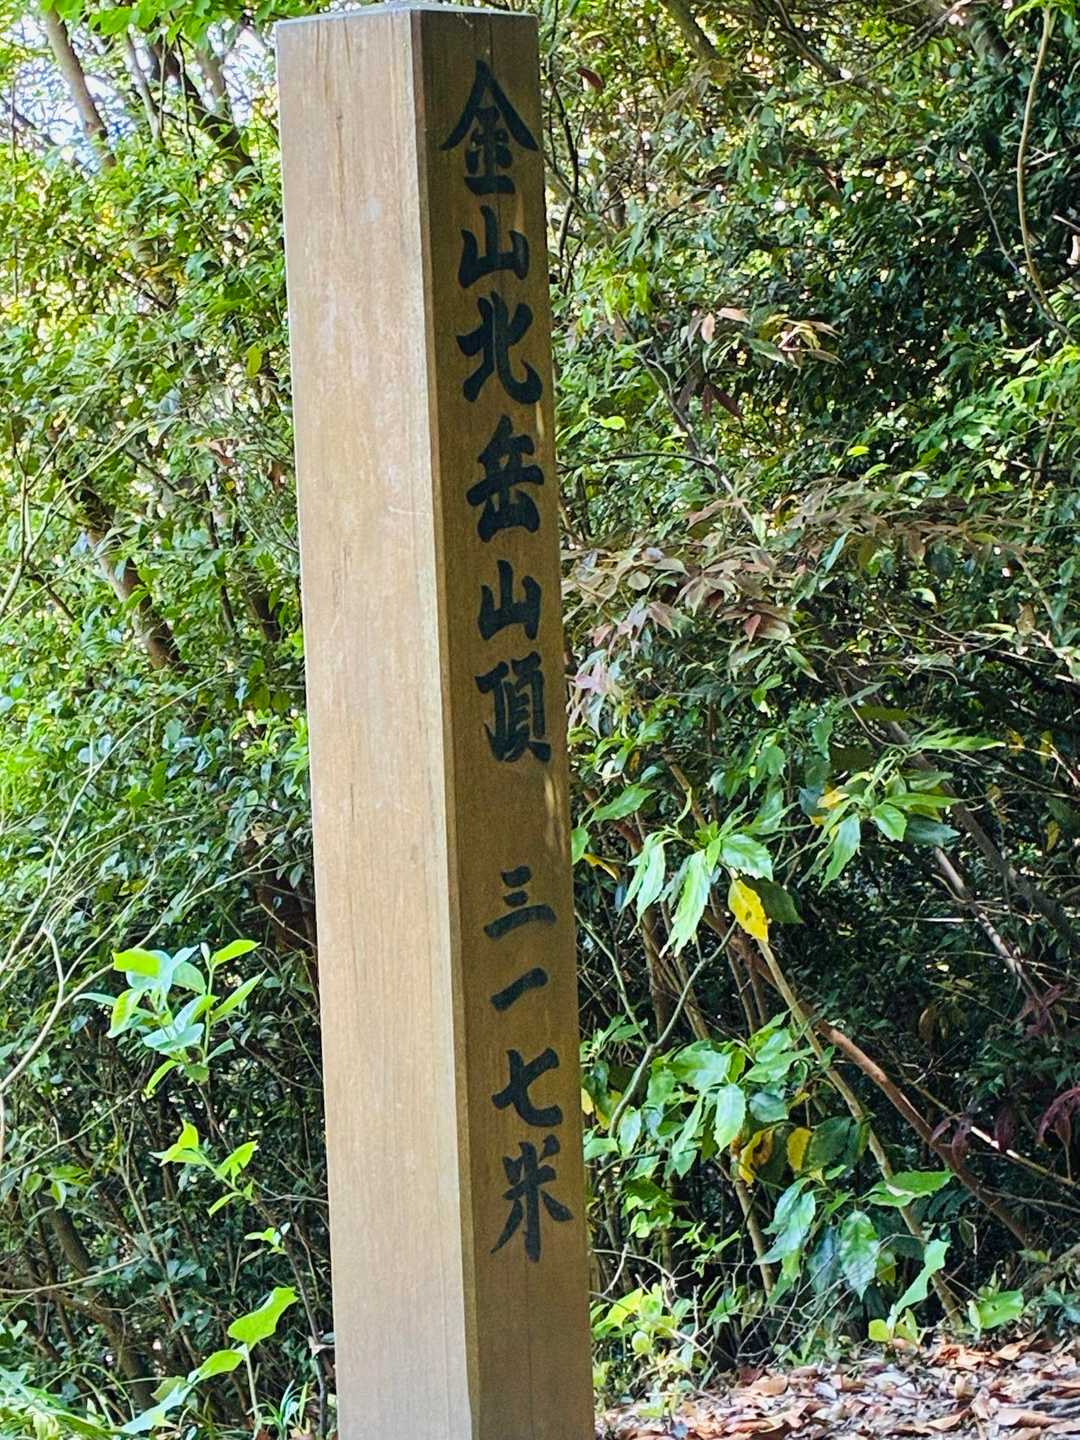 金山北岳山頂 三一七米